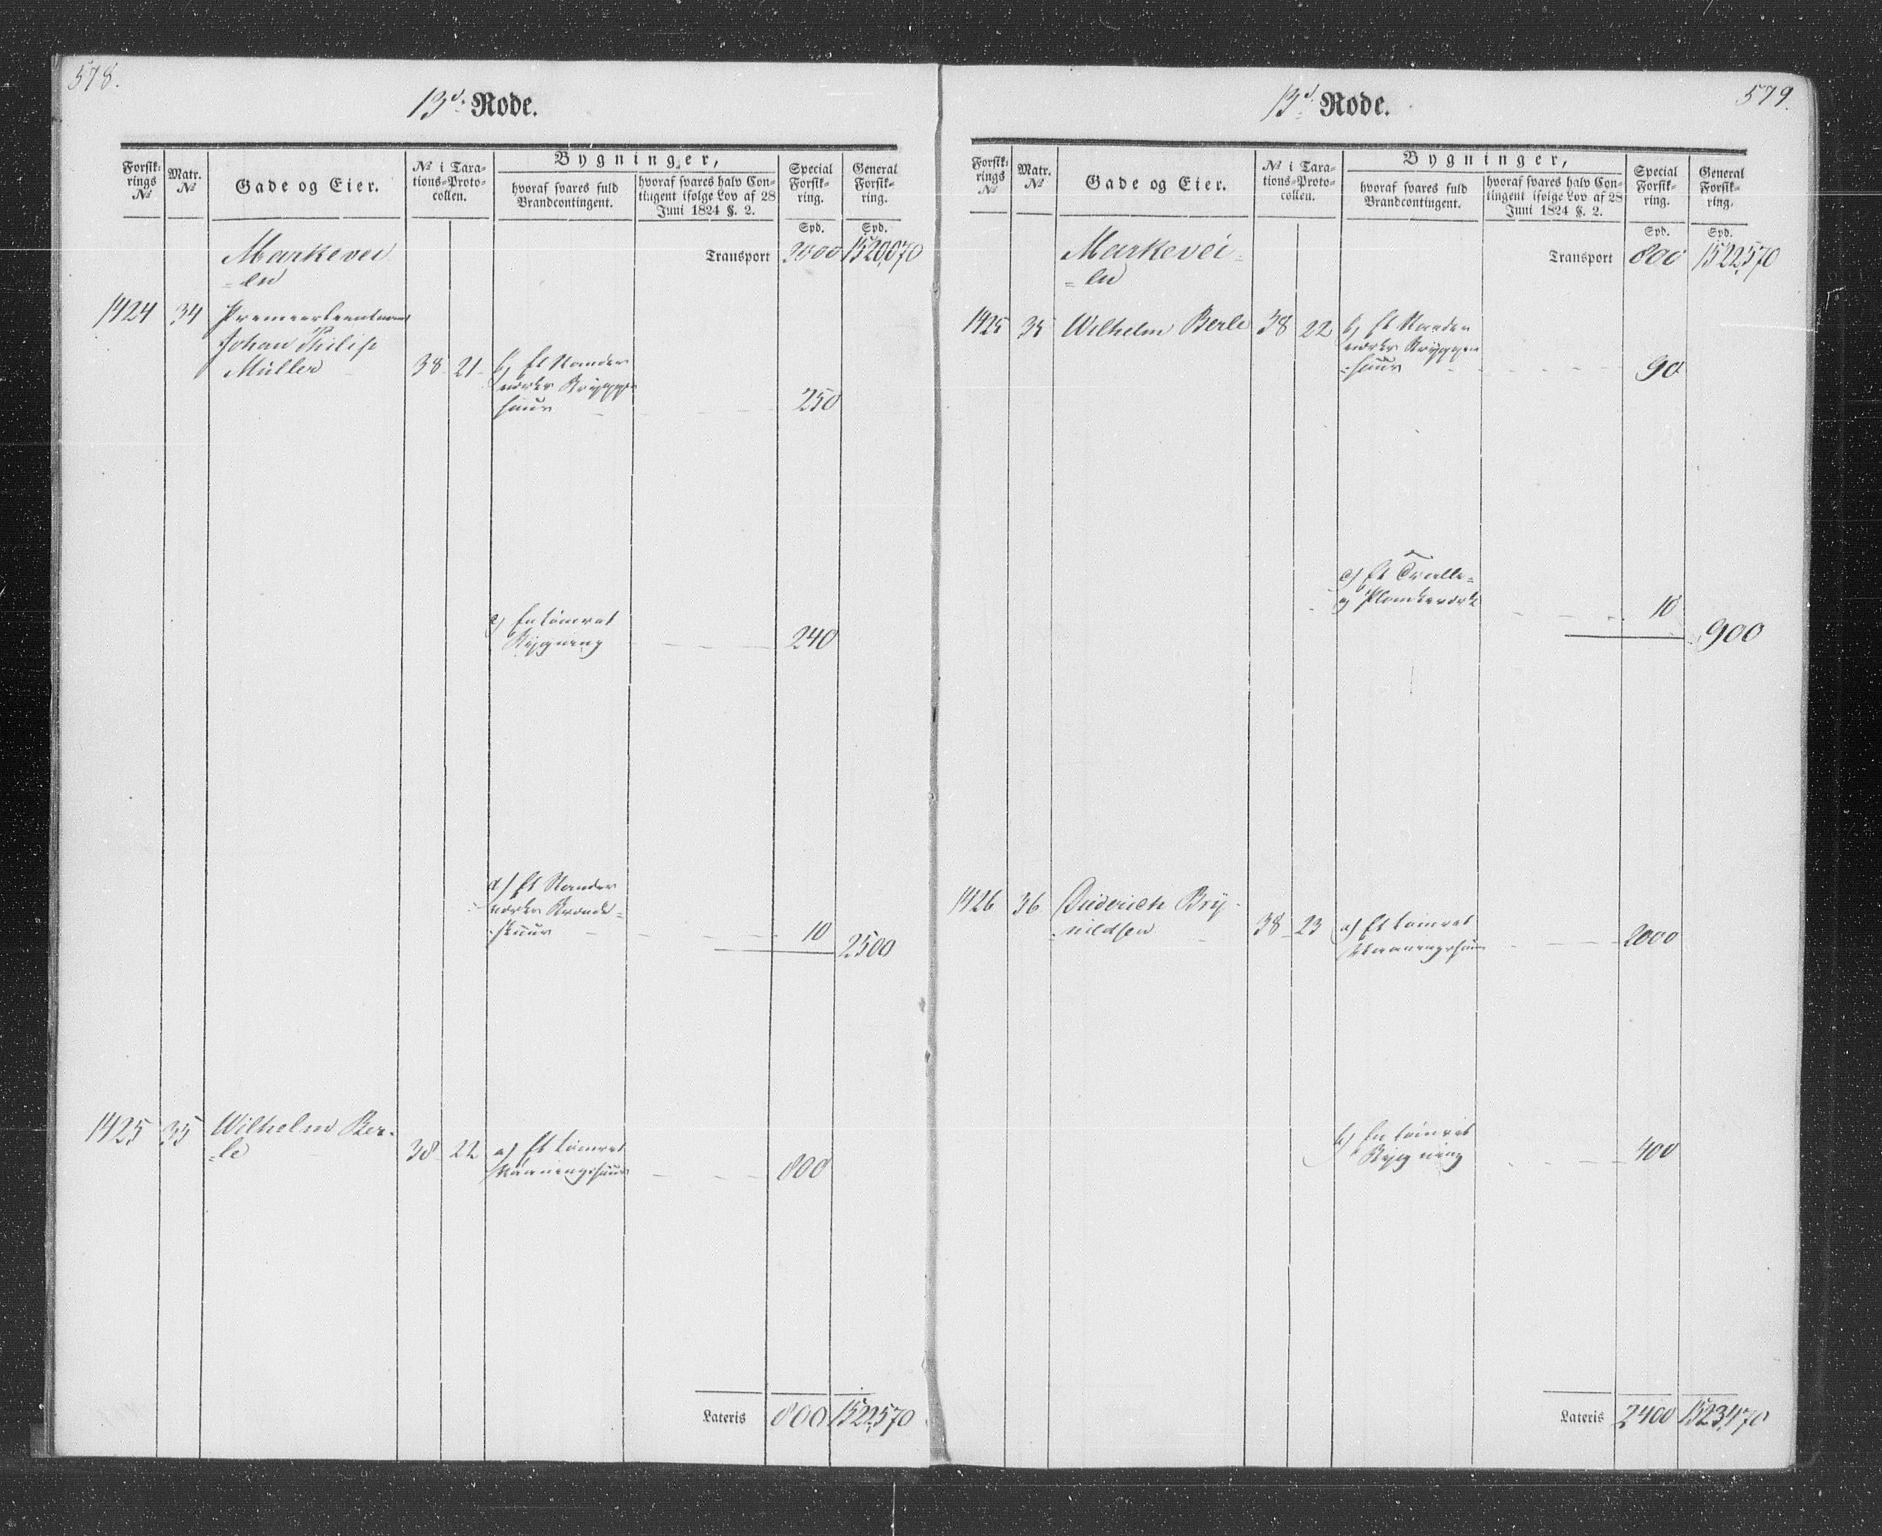 578.
13de Rode.
Forsik-
rings
No
Matr.
No
Gade og Eier.
No i Taxa-
tions-Proto-
collen.
Bygninger,
hvoraf svares fuld
Brandcontingent.
hvoraf svares halv Con-
tingent ifølge Lov af 28
Juni 1824 §. 2.
Special
Forsik-
ring.
General
Forsik-
ring.
Spd. Spd.
Markevei Transport 2000 152,0070
-en
1424 34 Premeerleutnant
Johan Philip
Müller 38 21 b) Et Stander
værks Brygge
huus 250
c) En tømret
Bygning 240
d) Et Stander
værks Brænde-
skuur 10 2500
1425 35 Wilhelm Ber-
-le 38 22 a) Et tømret
Vaaningshuus 800
Lateris 800 1522,570
579.
13de Rode.
Forsik-
rings
No
Matr.
No
Gade og Eier.
No i Taxa-
tions-Proto-
collen.
Bygninger,
hvoraf svares fuld
Brandcontingent.
hvoraf svares halv Con-
tingent ifølge Lov af 28
Juni 1824 §. 2.
Special
Forsik-
ring.
General
Forsik-
ring.
Spd. Spd.
Markevei- Transport 800 1522,570
-en
1425 35 Wilhelm Berle 38 22 b) Et Stander
værks Brygger
-huus 90
c) Et Trælle-
og Plankeværk 10
900
1426 36 Diderich Bry-
-nildsen 38 23 a) Et tømret
Vaaningshuus 2000
b) En tømret
Bygning 400
Lateris 2400 1523,470